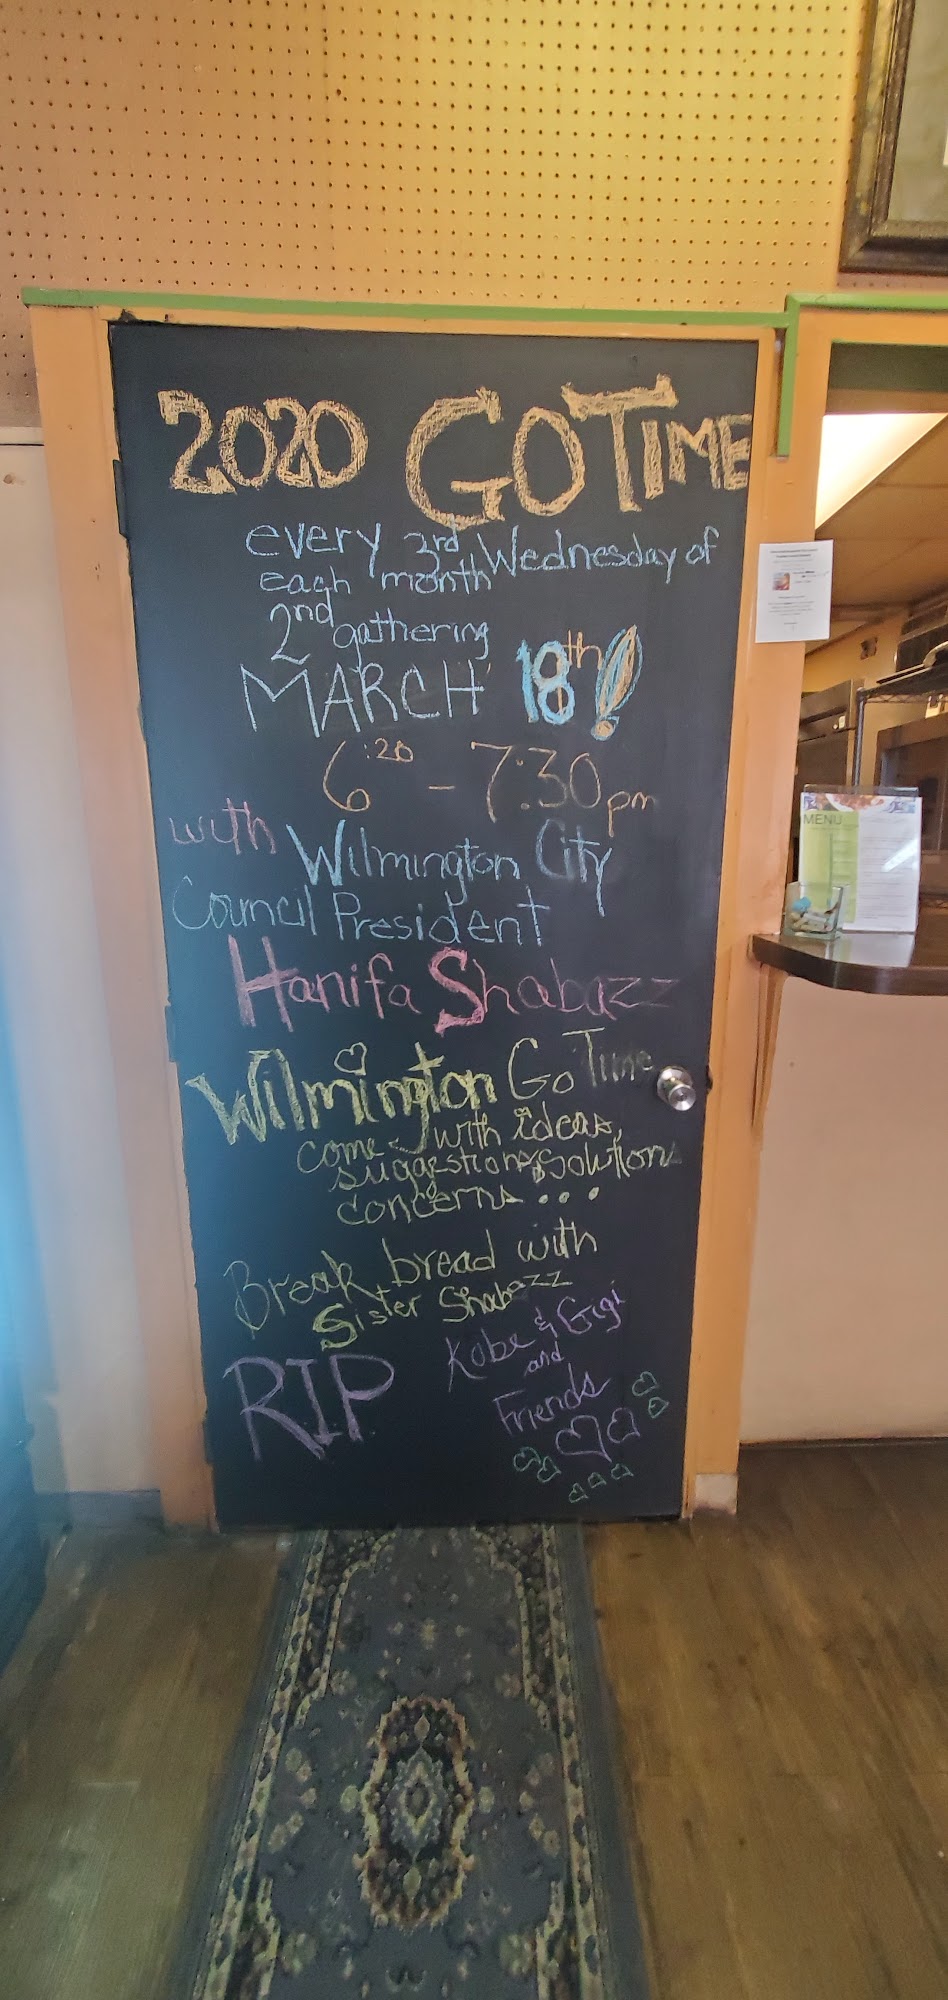 2020 GO TIME
every 3rd Wednesday of
each month
2nd gathering
MARCH 18th!
6:20 - 7:30 pm
with Wilmington City
Council President
Hanifa Shabazz
Wilmington Go Time
come with ideas,
suggestions, solutions
concerns...
Break bread with
Sister Shabazz
RIP Kobe & Gigi
and
Friends
MENU